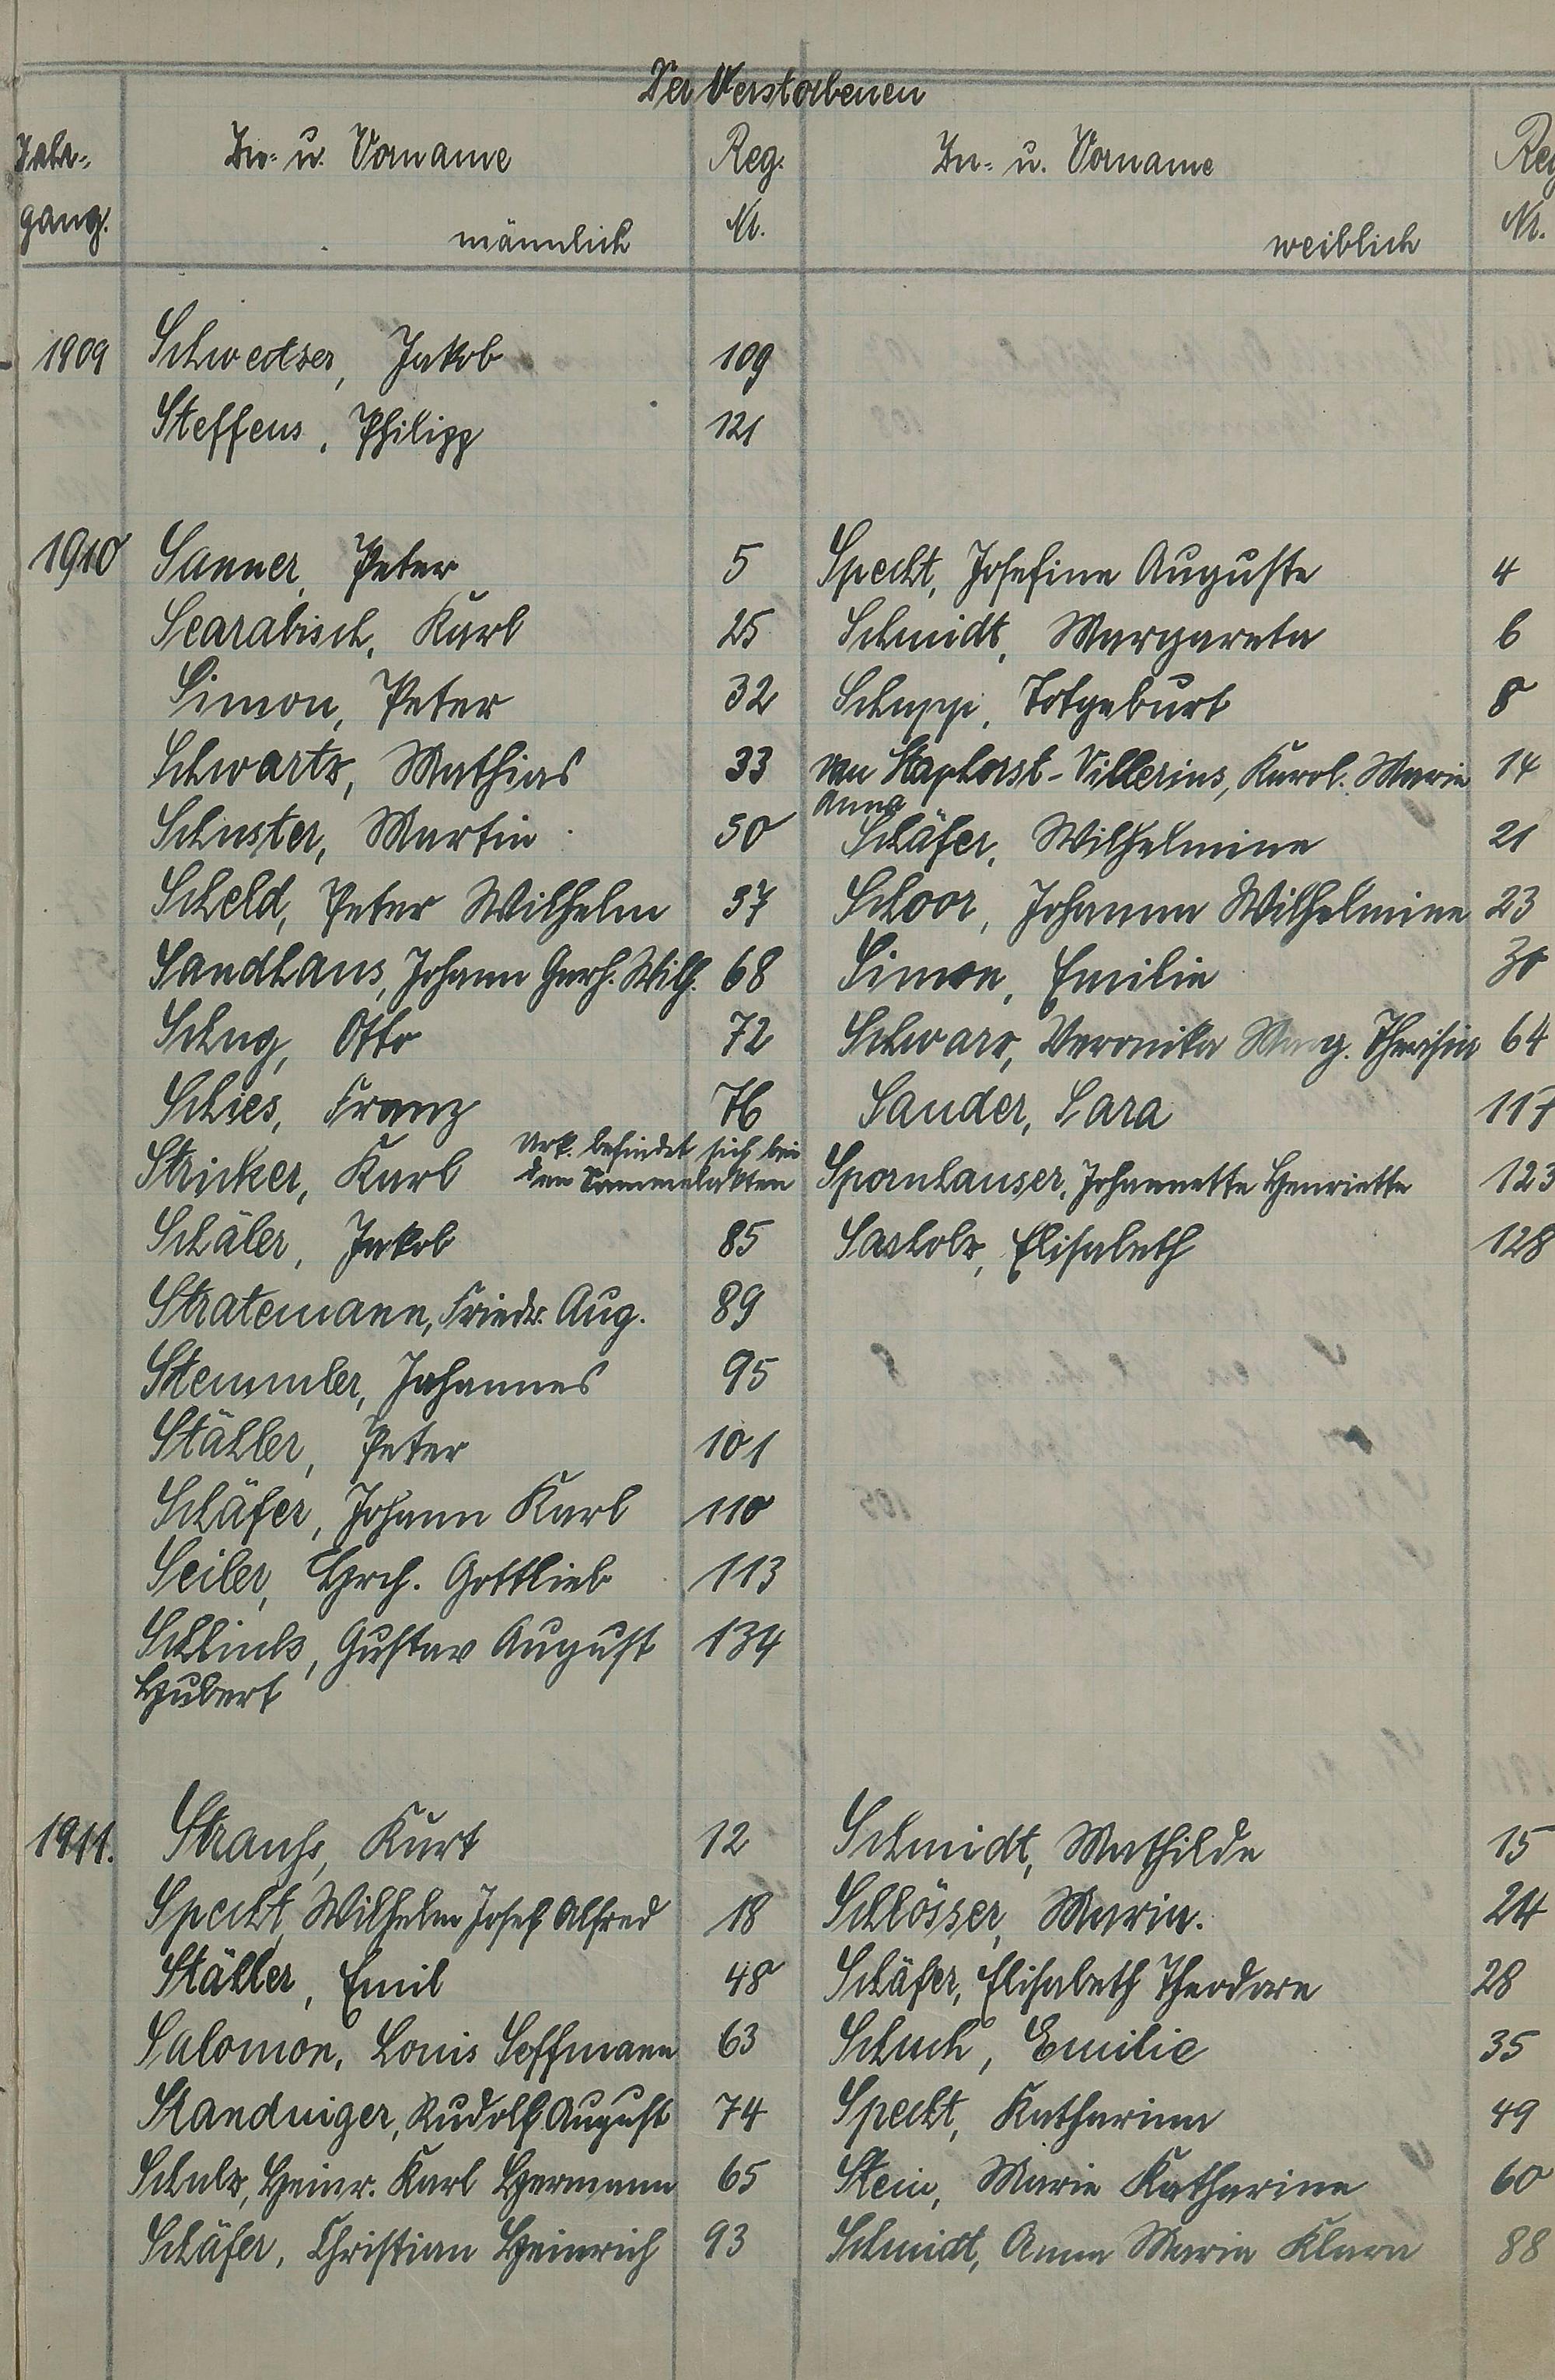 Der Verstorbenen
Jahr- Zu- u. Vorname Reg. Zu- u. Vorname Reg
gang. männlich Nr. weiblich Nr.
1909 Schwedser, Jakob 109
Steffens, Philipp 121
1910 Sanner, Peter 5 Specht, Josefine Auguste 4
Scarabisch, Karl 25 Schmidt, Margareta 6
Simon, Peter 32 Schupp, Totgeburt 8
Schwartz, Mathias 33 van Haphorst-Villerius, Karol. Marie 14
Anna
Schuster, Martin 50 Schäfer, Wilhelmine 21
Scheld, Peter Wilhelm 37 Schoor, Johanna Wilhelmine 23
Sandhaus, Johann Gerh. Wilh. 68 Simon, Emilie 30
Schug, Otto 72 Schwarz, Veronika Marg. Theresia 64
Schies, Franz 76 Sander, Sara 117
Urk. befindet sich bei
Stricker, Karl den Sammelakten Spornhauser, Johannette Henriette 123
Schäler, Jakob 85 Sasholz, Elisabeth 128
Stratemann, Friedr. Aug. 89
Stemmler, Johannes 95
Stähler, Peter 101
Schäfer, Johann Karl 110
Seiler, Hrch. Gottlieb 113
Schlink, Gustav August 134
Hubert
1911. Strauß, Kurt 12 Schmidt, Mathilde 15
Specht, Wilhelm Josef Alfred 18 Schlösser, Maria. 24
Stähler, Emil 48 Schäfer, Elisabeth Theodore 28
Salomon, Louis Soffmann 63 Schuch, Emilie 35
Standniger, Rudolf August 74 Specht, Katharina 49
Schulz, Heinr. Karl Hermann 65 Stein, Marie Katharine 60
Schäfer, Christian Heinrich 93 Schmidt, Anna Maria Klara 88